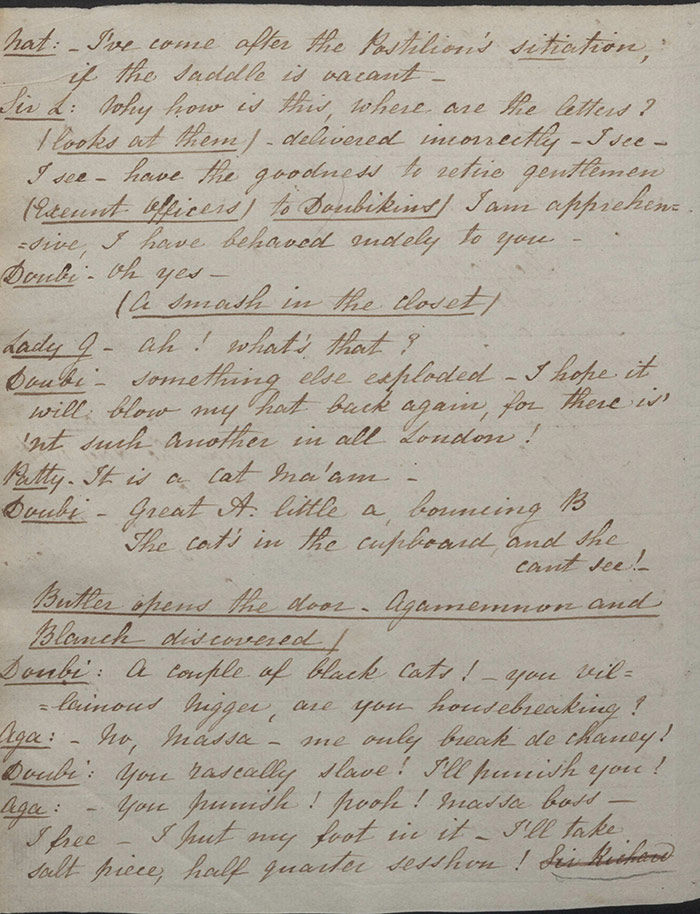 Nat: - I've come after the Postilion's sitiation,
if the saddle is vacant -
Sir L: Why how is this, where are the letters?
(looks at them) - delivered incorrectly - I see -
I see - have the goodness to retire gentlemen
(Exeunt officers) to Doubikins) I am apprehen=
=sive, I have behaved rudely to you -
Doubi - Oh yes -
(A smash in the closet)
Lady G - Ah! what's that?
Doubi - something else exploded - I hope it
will blow my hat back again, for there is'
'nt such another in all London!
Patty - It is a cat Ma'am -
Doubi - Great A little a, bouncing B
The cat's in the cupboard, and she
cant see! -
Butler opens the door - Agamemnon and
Blanch discovered)
Doubi: A couple of black cats! - you vil=
=lainous nigger, are you housebreaking?
Aga: - No, Massa - me only break de chaney!
Doubi: You rascally slave! I'll punish you!
Aga: - You punish! pooh! Massa boss -
I free - I put my foot in it - I'll take
salt piece, half quarter sesshon! Sir Richard